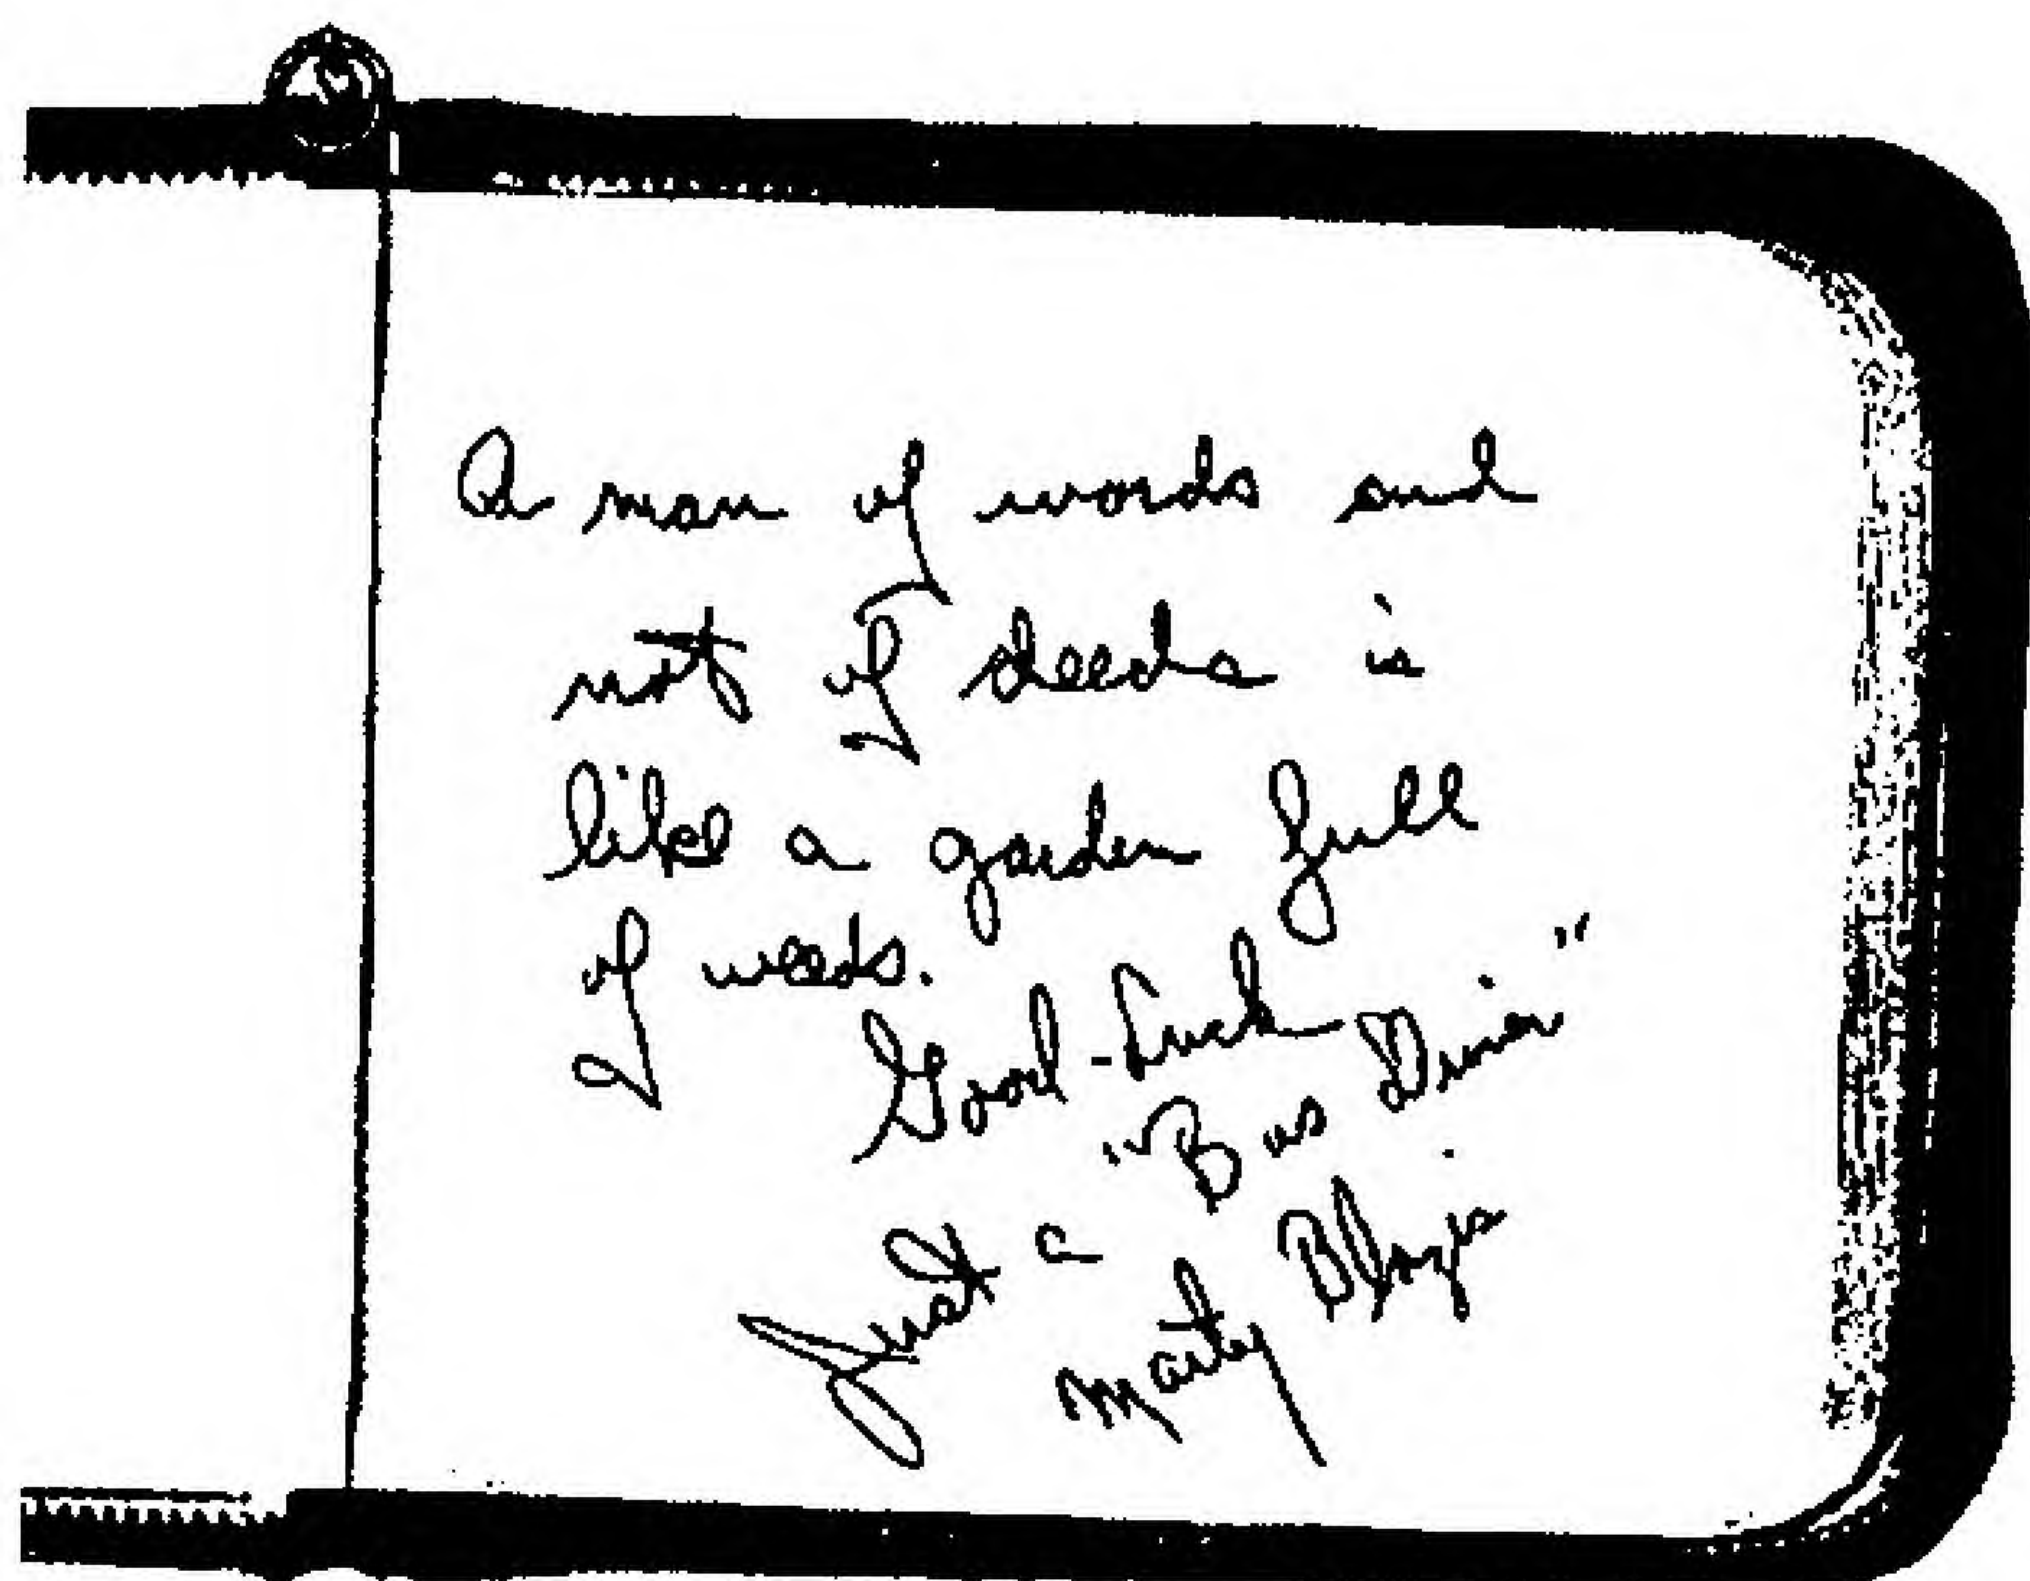 A man of words and
not of deeds is
like a garden full
of weeds.
Good-Luck
Just a "Bus Diner"
Marty